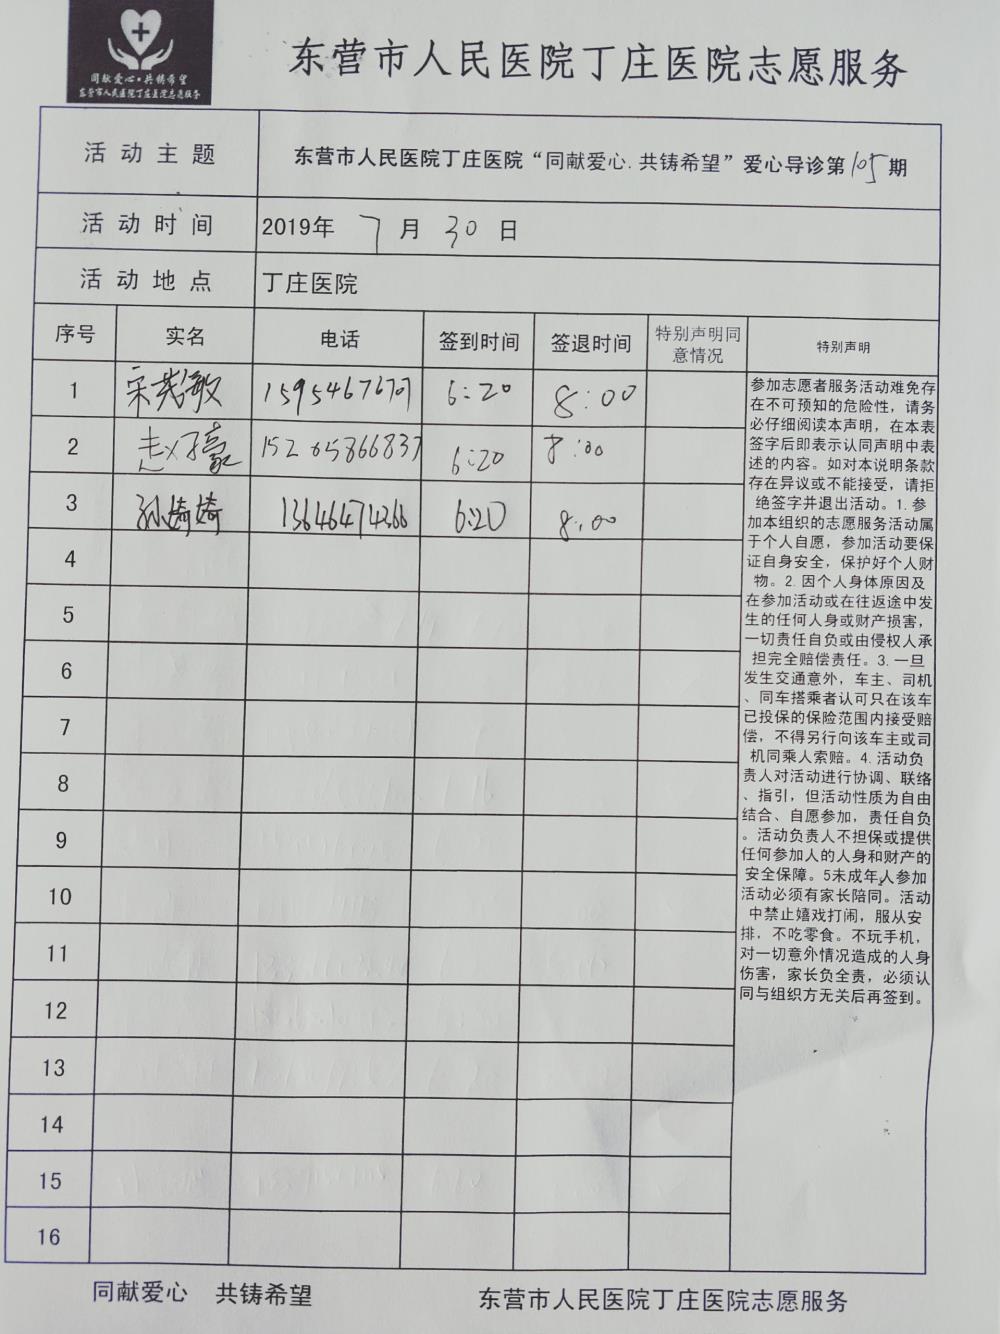 同献爱心·共铸希望
东营市人民医院丁庄医院志愿服务
东营市人民医院丁庄医院志愿服务
活动主题
东营市人民医院丁庄医院“同献爱心.共铸希望”爱心导诊第105期
活动时间 2019年 7月 30日
活动地点 丁庄医院
序号 实名 电话 签到时间 签退时间 特别声明同意情况 特别声明
1 宋 敏 15954676707 6:20 8:00
2 赵 豪 15265866837 6:20 8:00
3 孙婷婷 13646474366 6:20 8:00
4
5
6
7
8
9
10
11
12
13
14
15
16
参加志愿者服务活动难免存
在不可预知的危险性，请务
必仔细阅读本声明，在本表
签字后即表示认同声明中表
述的内容。如对本说明条款
存在异议或不能接受，请拒
绝签字并退出活动。1.参
加本组织的志愿服务活动属
于个人自愿，参加活动要保
证自身安全，保护好个人财
物。2.因个人身体原因及
在参加活动或在往返途中发
生的任何人身或财产损害，
一切责任自负或由侵权人承
担完全赔偿责任。3.一旦
发生交通意外，车主、司机
、同车搭乘者认可只在该车
已投保的保险范围内接受赔
偿，不得另行向该车主或司
机同乘人索赔。4.活动负
责人对活动进行协调、联络
、指引，但活动性质为自由
结合、自愿参加，责任自负
。活动负责人不担保或提供
任何参加人的人身和财产的
安全保障。5未成年人参加
活动必须有家长陪同。活动
中禁止嬉戏打闹，服从安
排，不吃零食。不玩手机，
对一切意外情况造成的人身
伤害，家长负全责，必须认
同与组织方无关后再签到。
同献爱心 共铸希望 东营市人民医院丁庄医院志愿服务